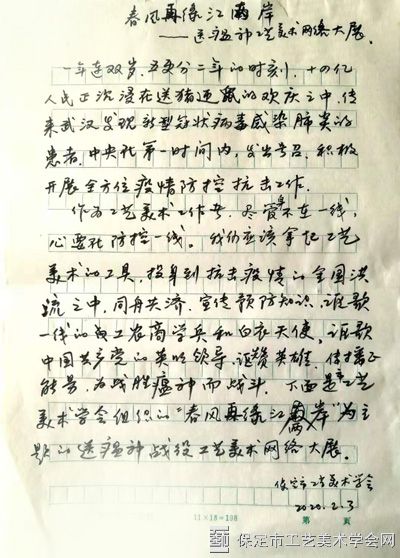 春风再绿江南岸
——送瘟神工艺美术网络大展、
一年连双岁,五更分二年的时刻,十四亿
人民正沉浸在送猪迎鼠的欢庆之中,传
来武汉发现新型冠状病毒感染肺炎的
患者,中央在第一时间内,发出号召,积极
开展全方位疫情防控抗击工作.
作为工艺美术工作者,尽管不在一线,
心要在防控一线。我们应该拿起工艺
美术的工具,投身到抗击疫情的全国洪
流之中,同舟共济,宣传预防知识,讴歌
一线的工农商学兵和白衣天使,讴歌
中国共产党的英明领导,讴赞英雄,传播正
能量,为战胜瘟神而战斗.下面是工艺
美术学会组织的“春风再绿江南岸”为主
题的送瘟神战役工艺美术网络大展。
保定市工艺美术学会
2020.2.3
11×18=198
第 页
保定市工艺美术学会网